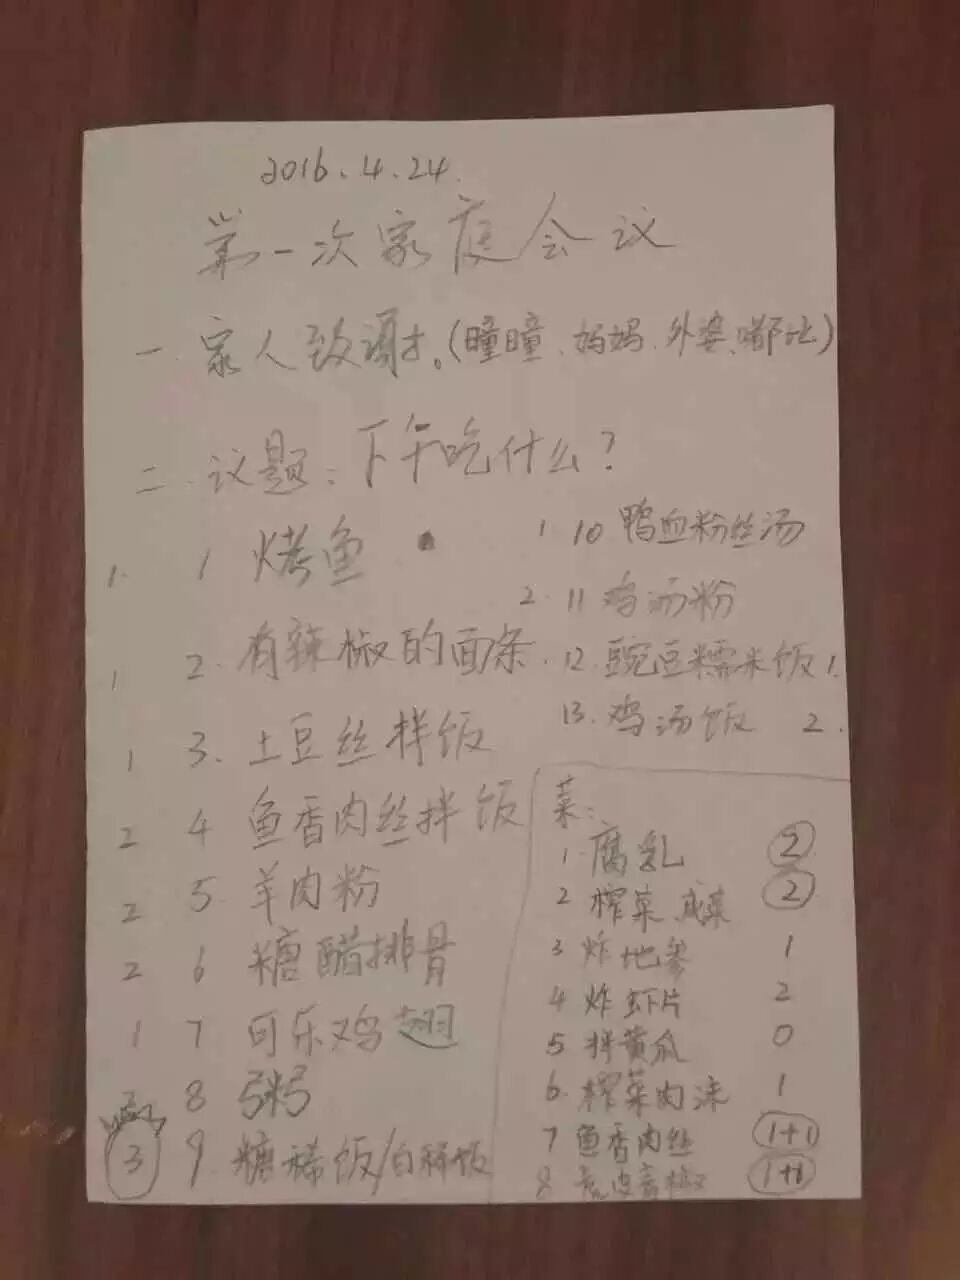 2016.4.24.
第一次家庭会议
一.家人致谢。(瞳瞳、妈妈、外婆、嘟比)
二.议题:下午吃什么?
1. 1 烤鱼
1 2. 有辣椒的面条
1 3. 土豆丝拌饭
2 4 鱼香肉丝拌饭
2 5. 羊肉粉
2 6 糖醋排骨
1 7 可乐鸡翅
8 粥
3 9. 糖稀饭/白稀饭
1. 10 鸭血粉丝汤
2. 11 鸡汤粉
12. 豌豆糯米饭 1.
13. 鸡汤饭 2.
菜:
1. 腐乳 2
2 榨菜、咸菜 2
3 炸地参 1
4 炸虾片 2
5 拌黄瓜 0
6. 榨菜肉沫 1
7 鱼香肉丝 1+1
8 虎皮青椒 1+1